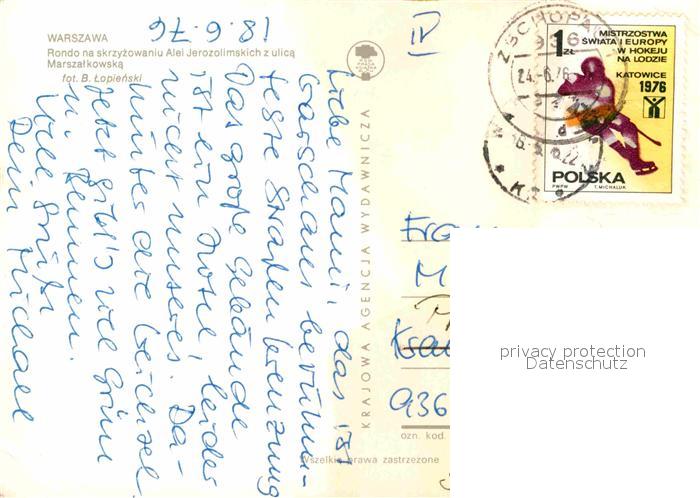 WARSZAWA
Rondo na skrzyżowaniu Alei Jerozolimskich z ulicą
Marszałkowską
fot. B. Łopieński
18.6.76
Liebe Mami, das ist
Warschaus berühm-
teste Straßenkreuzung
Das große Gebäude
ist ein Hotel, leider
nicht unseres. Da-
hinter die Weichsel.
Jetzt gibt's viel Grün
u. Blumen.
Viele Grüße
Dein Michael
KRAJOWA AGENCJA WYDAWNICZA
IV
ZSCHOPAU
936
24.-6.76
1 ZŁ
MISTRZOSTWA
ŚWIATA I EUROPY
W HOKEJU
NA LODZIE
KATOWICE
1976
POLSKA
PWPW
T. MICHALUK
M
936
ozn. kod.
Wszelkie prawa zastrzeżone
privacy protection
Datenschutz